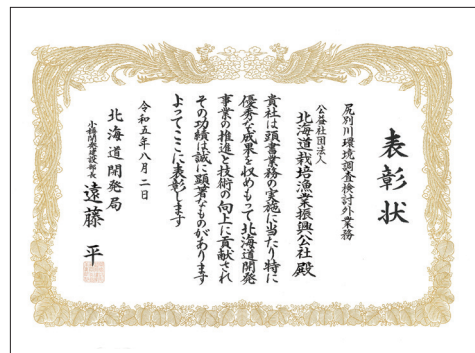 表彰状
尻別川環境調査検討外業務
公益社団法人
北海道栽培漁業振興公社 殿
貴社は頭書業務の実施に当たり特に
優秀な成果を収めもって北海道開発
事業の推進と技術の向上に貢献され
その功績は誠に顕著なものがあります
よってここに表彰します
令和五年八月二日
北海道開発局
小樽開発建設部長 遠藤 平